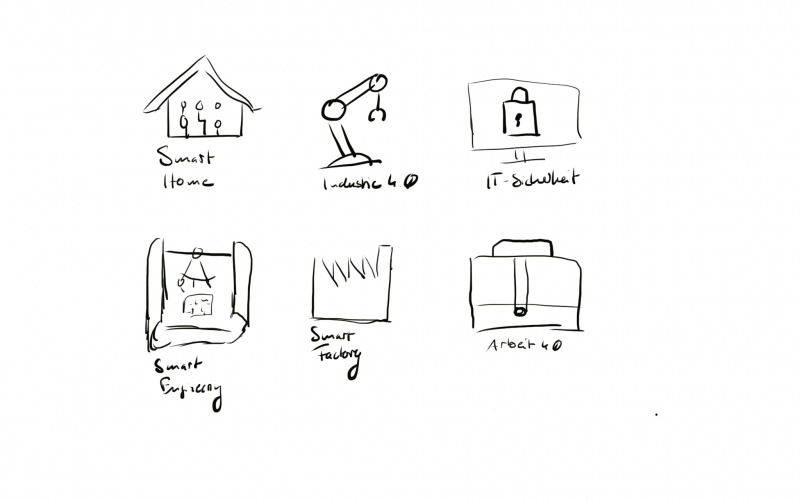 Smart
Home
Industrie 4.0
IT-Sicherheit
Smart
Smart
Factory
Arbeit 4.0